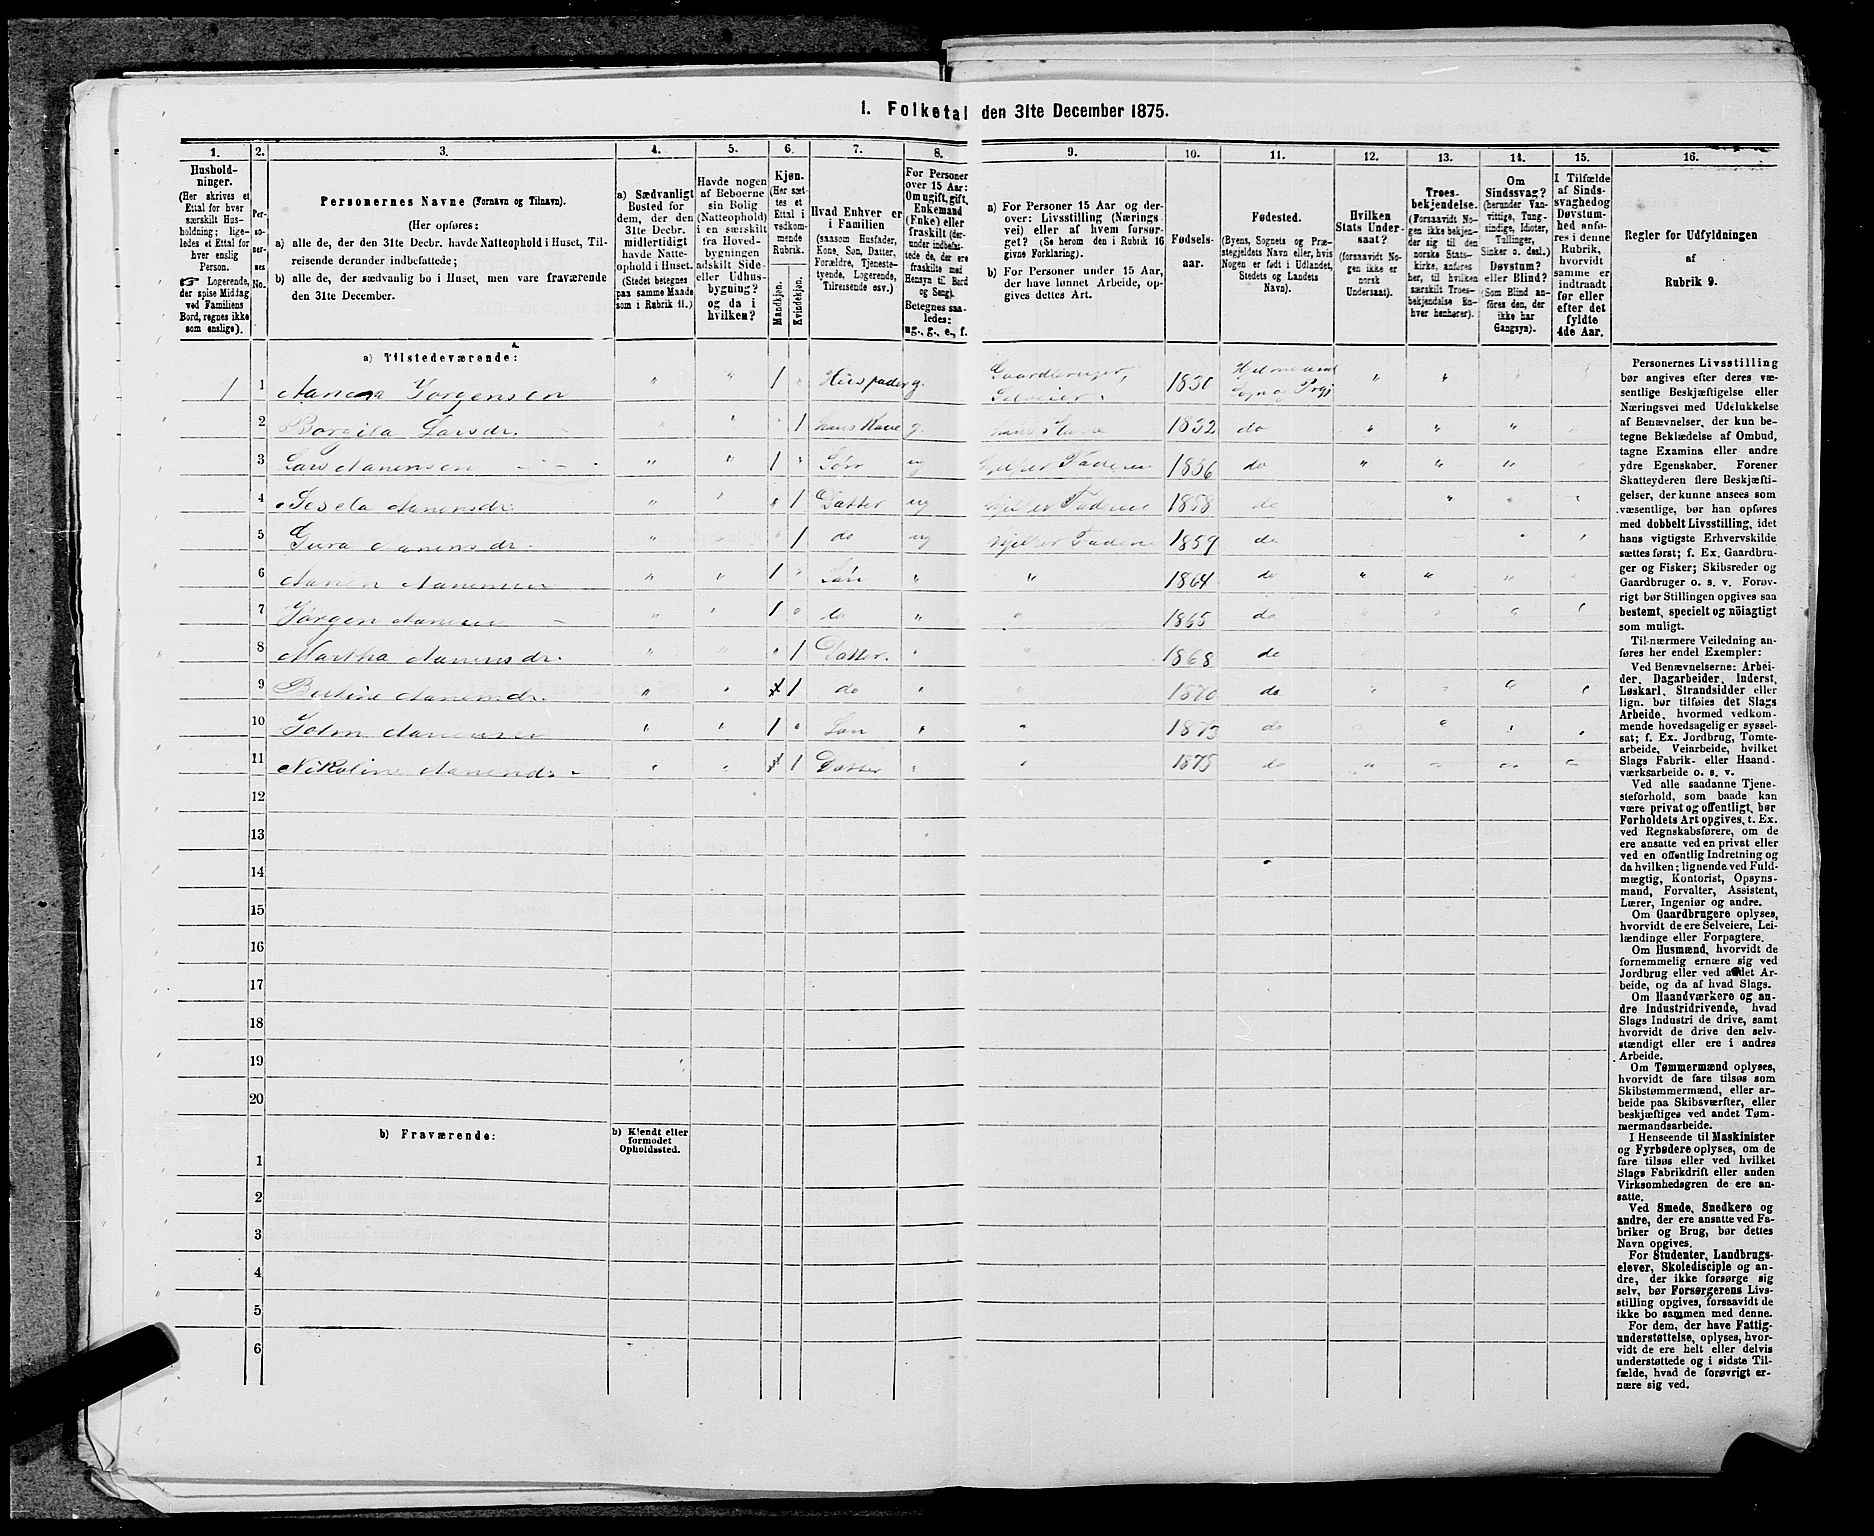 1. Folketal den 31te December 1875.
1.
Hushold-
ninger.
(Her skrives et
Ettal for hver
særskilt Hus-
holdning; lige-
ledes et Ettal for
hver enslig
Person.
☞ Logerende,
der spise Middag
ved Familiens
Bord, regnes ikke
som enslige).
2.
Per-
so-
ner-
nes
No.
3.
Personernes Navne (Fornavn og Tilnavn).
(Her opføres:
a) alle de, der den 31te Decbr. havde Natteophold i Huset, Til-
reisende derunder indbefattede;
b) alle de, der sædvanlig bo i Huset, men vare fraværende
den 31te December.
4.
a) Sædvanligt
Bosted for
dem, der den
31te Decbr.
midlertidigt
havde Natte-
ophold i Huset.
(Stedet betegnes
paa samme Maade
som i Rubrik 11.)
5.
Havde nogen
af Beboerne
sin Bolig
(Natteophold)
i en særskilt
fra Hoved-
bygningen
adskilt Side-
eller Udhus-
bygning?
og da i
hvilken?
6.
Kjøn.
(Her sæt-
tes et
Ettal i
vedkom-
mende
Rubrik.
Mandkjøn.
Kvindekjøn.
7.
Hvad Enhver er
i Familien
(saasom Husfader,
Kone, Søn, Datter,
Forældre, Tjeneste-
tyende, Logerende,
Tilreisende osv.)
8.
For Personer
over 15 Aar:
Om ugift, gift,
Enkemand
(Enke) eller
fraskilt (der-
under indbefat-
tede de, der ere
fraskilte med
Hensyn til Bord
og Seng).
Betegnes saa-
ledes:
ug., g., e., f.
9.
a) For Personer 15 Aar og der-
over: Livsstilling (Nærings-
vei) eller af hvem forsør-
get? (Se herom den i Rubrik 16
givne Forklaring).
b) For Personer under 15 Aar,
der have lønnet Arbeide, op-
gives dettes Art.
10.
Fødsels-
aar.
11.
Fødested.
(Byens, Sognets og Præ-
stegjeldets Navn eller, hvis
Nogen er født i Udlandet,
Stedets og Landets
Navn).
12.
Hvilken
Stats Under-
saat?
(forsaavidt No-
gen ikke er
norsk
Undersaat).
13.
Troes-
bekjendelse.
(Forsaavidt No-
gen ikke bekjen-
der sig til den
norske Stats-
kirke, anføres
her, til hvilken
særskilt Troes-
bekjendelse En-
hver henhører).
14.
Om
Sindssvag?
(herunder Van-
vittige, Tung-
sindige, Idioter,
Tullinger,
Sinker o. desl.)
Døvstum?
eller Blind?
(Som Blind an-
føres den, der
ikke har
Gangsyn).
15.
I Tilfælde
af Sinds-
svaghed og
Døvstum-
hed anfø-
res i denne
Rubrik,
hvorvidt
samme er
indtraadt
før eller
efter det
fyldte
4de Aar.
16.
Regler for Udfyldningen
af
Rubrik 9.
a) Tilstedeværende:
1 1 Jorgensen " " 1 " Husfader g. Gaardbruger, Selveier. 1830 Sogn og Prgj " "
2 Larsdr. " " 1 hans Kone g. hans Kone 1832 do " " "
3 Lars Aanensen " " 1 " Søn ug Hjelper Faderen 1856 do " " "
4 Aanensdr. " " " 1 Datter ug Hjelper Faderen 1858 do " " "
5 Gura Aanensdr. " " " 1 do ug Hjelper Faderen 1859 do " "
6 Aanen Aanensen " " 1 " Søn " " 1864 do " " "
7 Jørgen Aanensen " " 1 " do " " 1865 do " "
8 Martha Aanensdr. " " " 1 Datter. " " 1868 do
9 Bertine Aanensdr. " " 1 do " " 1870 do " " " "
10 Aanensen " " 1 " Søn " " 1873 do " " "
11 Nikoline Aanensdr " " 1 Datter " " 1875 do " " " "
12
13
14
15
16
17
18
19
20
b) Fraværende:
b) Kjendt eller
formodet
Opholdssted.
1
2
3
4
5
6
Personernes Livsstilling
bør angives efter deres væ-
sentlige Beskjæftigelse eller
Næringsvei med Udelukkelse
af Benævnelser, der kun be-
tegne Beklædelse af Ombud,
tagne Examina eller andre
ydre Egenskaber. Forener
Skatteyderen flere Beskjæfti-
gelser, der kunne ansees som
væsentlige, bør han opføres
med dobbelt Livsstilling, idet
hans vigtigste Erhvervskilde
sættes først; f. Ex. Gaardbru-
ger og Fisker; Skibsreder og
Gaardbruger o. s. v. Forøv-
rigt bør Stillingen opgives saa
bestemt, specielt og nöiagtigt
som muligt.
Til nærmere Veiledning an-
føres her endel Exempler:
Ved Benævnelserne: Arbei-
der, Dagarbeider, Inderst,
Løskarl, Strandsidder eller
lign. bør tilføies det Slags
Arbeide, hvormed vedkom-
mende hovedsagelig er syssel-
sat; f. Ex. Jordbrug, Tomte-
arbeide, Veiarbeide, hvilket
Slags Fabrik- eller Haand-
værksarbeide o. s. v.
Ved alle saadanne Tjene-
steforhold, som baade kan
være privat og offentligt, bør
Forholdets Art opgives, t. Ex.
ved Regnskabsførere, om de
ere ansatte ved en privat eller
ved en offentlig Indretning og
da hvilken; lignende ved Fuld-
mægtig, Kontorist, Opsyns-
mand, Forvalter, Assistent,
Lærer, Ingeniør og andre.
Om Gaardbrugere oplyses,
hvorvidt de ere Selveiere, Lei-
lændinge eller Forpagtere.
Om Husmænd, hvorvidt de
fornemmelig ernære sig ved
Jordbrug eller ved andet Ar-
beide, og da af hvad Slags.
Om Haandværkere og an-
dre Industridrivende, hvad
Slags Industri de drive, samt
hvorvidt de drive den selv-
stændigt eller ere i andres
Arbeide.
Om Tømmermænd oplyses,
hvorvidt de fare tilsøs som
Skibstømmermænd, eller ar-
beide paa Skibsværfter, eller
beskjæftiges ved andet Tøm-
mermandsarbeide.
I Henseende til Maskinister
og Fyrbødere oplyses, om de
fare tilsøs eller ved hvilket
Slags Fabrikdrift eller anden
Virksomhedsgren de ere an-
satte.
Ved Smede, Snedkere og
andre, der ere ansatte ved Fa-
briker og Brug, bør dettes
Navn opgives.
For Studenter, Landbrugs-
elever, Skoledisciple og an-
dre, der ikke forsørge sig
selv, bør Forsørgerens Livs-
stilling opgives, forsaavidt de
ikke bo sammen med denne.
For dem, der have Fattig-
understøttelse, oplyses, hvor-
vidt de ere helt eller delvis
understøttede og i sidste Til-
fælde, hvad de forøvrigt er-
nære sig ved.